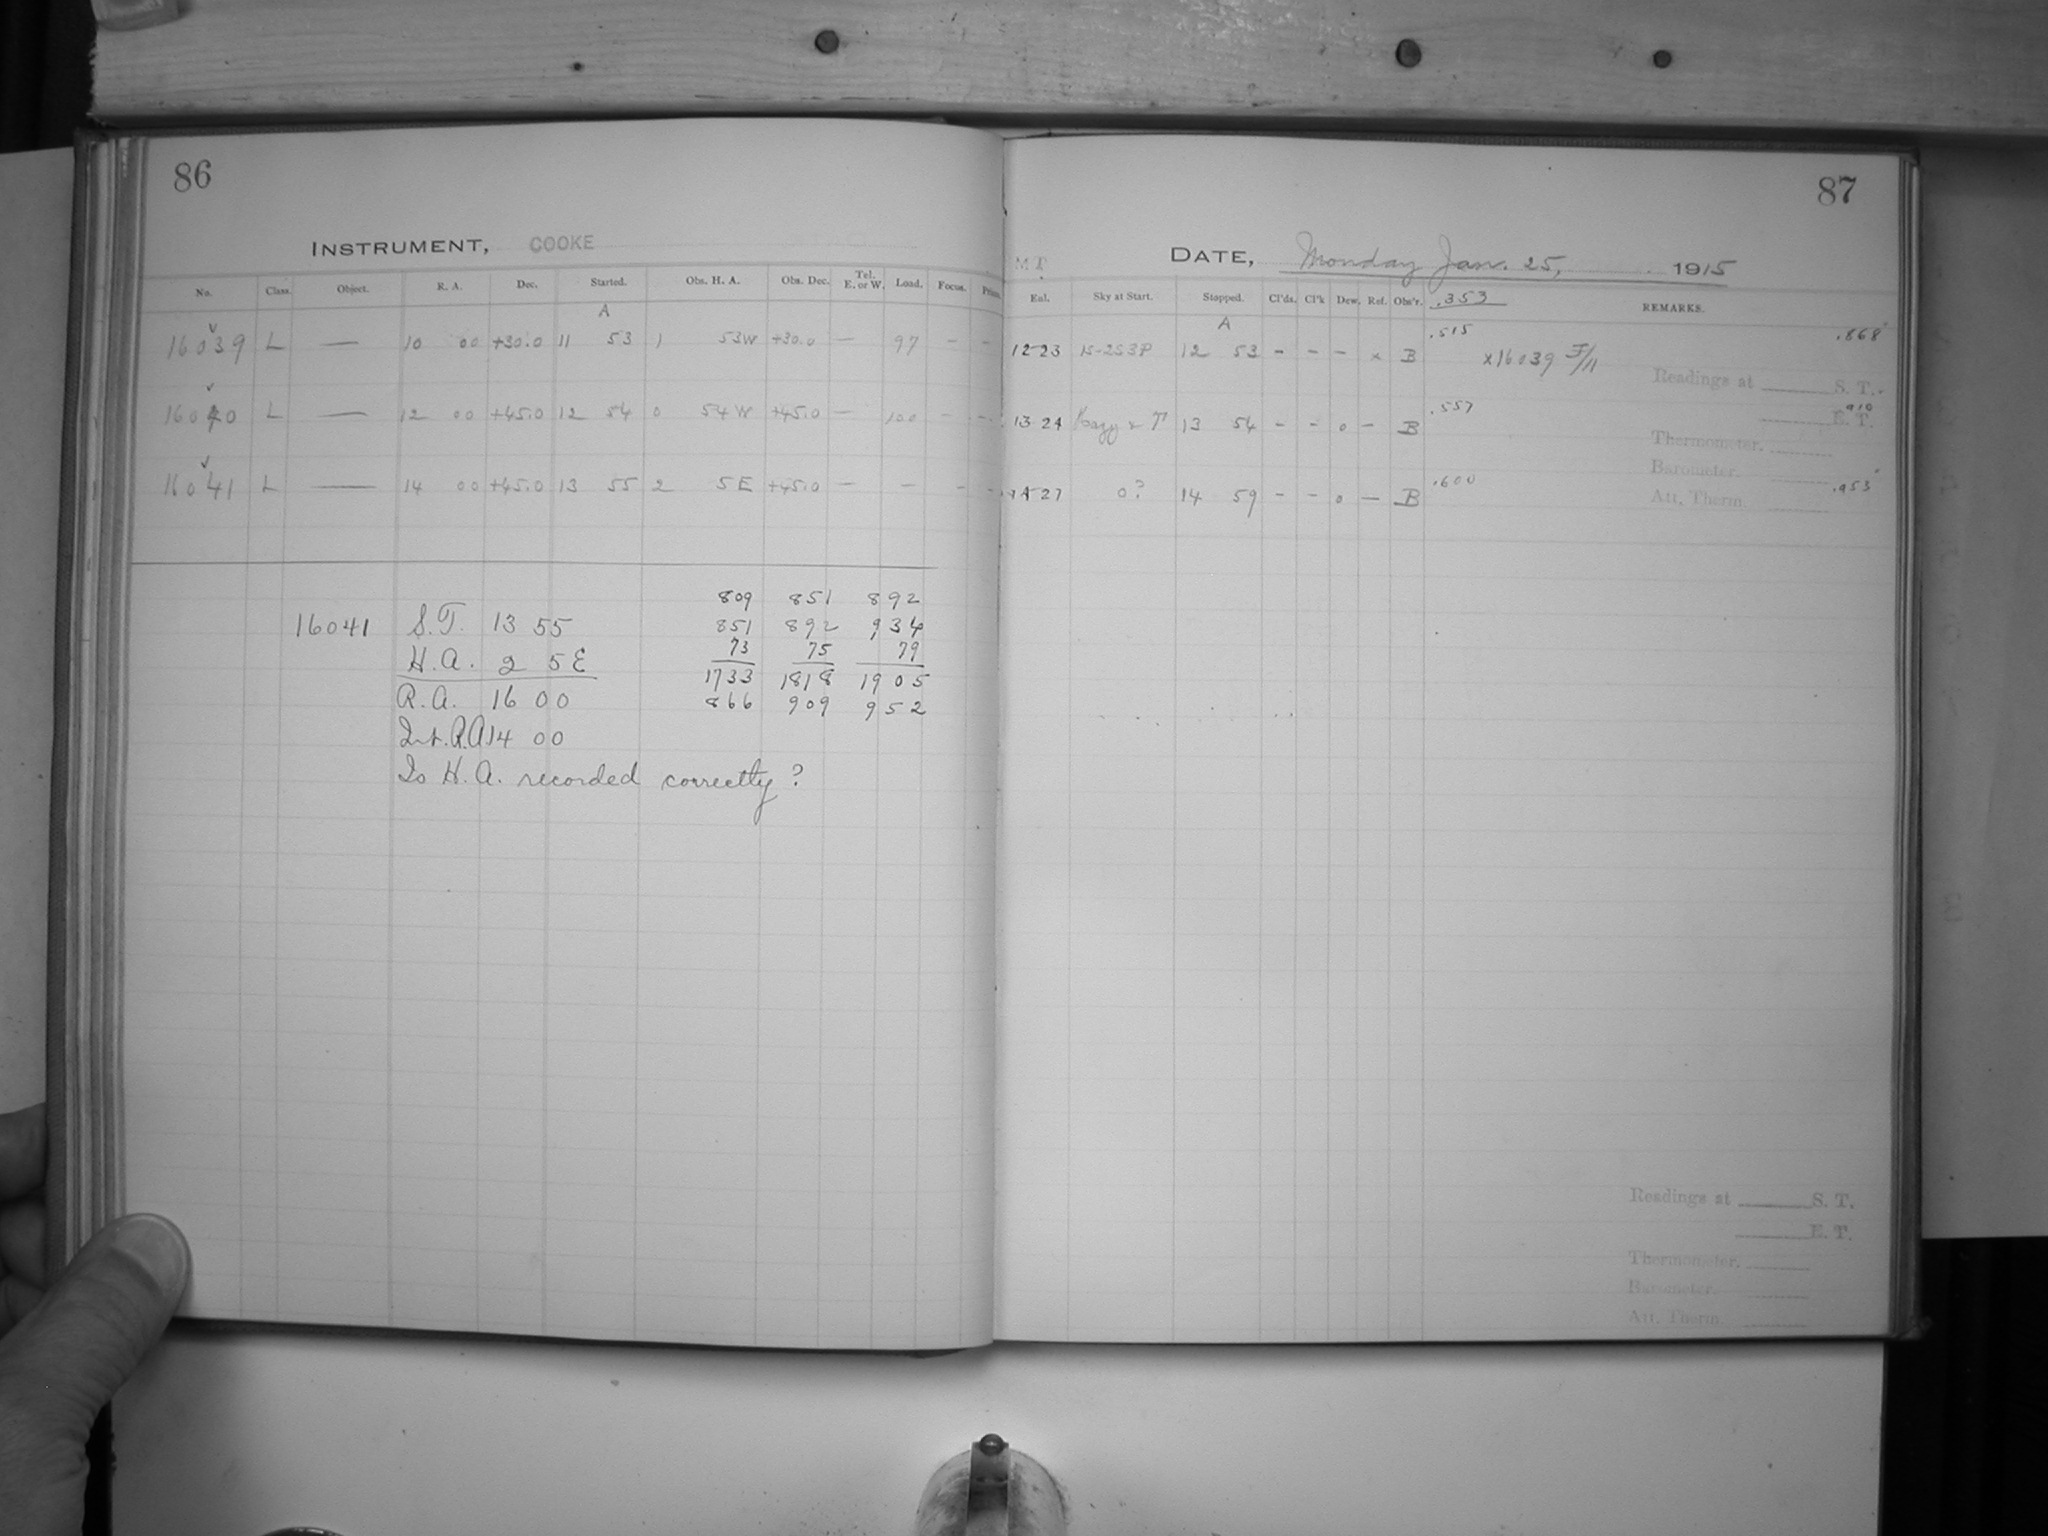 86
INSTRUMENT, COOKE
No. Class. Object. R. A. Dec. Started. Obs. H. A. Obs. Dec. Tel. E. or W. Load. Focus.
A
16039 L — 10 00 +30.0 11 53 1 53W +30.0 — 97 - -
16040 L — 12 00 +45.0 12 54 0 54W +45.0 — 100 - -
16041 L — 14 00 +45.0 13 55 2 5E +45.0 — — - -
809 851 892
16041 S.T. 13 55 851 892 934
H.A. 2 5E 73 75 79
R.A. 16 00 1733 1818 1905
Int. R.A 14 00 866 909 952
Is H.A. recorded correctly?
87
M T
DATE, Monday Jan. 25, 1915
Eul. Sky at Start. Stopped. Cl'ds. Cl'k Dew. Ref. Obs'r. .353 REMARKS.
A
12 23 12 53 - - - x B .515 x16039 F/11 .868
Readings at S. T.
13 24 13 54 - - 0 - B .557 .910
E. T.
Thermometer.
Barometer.
27 0? 14 59 - - 0 — B .600 .953
Att. Therm.
Readings at S. T.
E. T.
Thermometer.
Barometer.
Att. Therm.